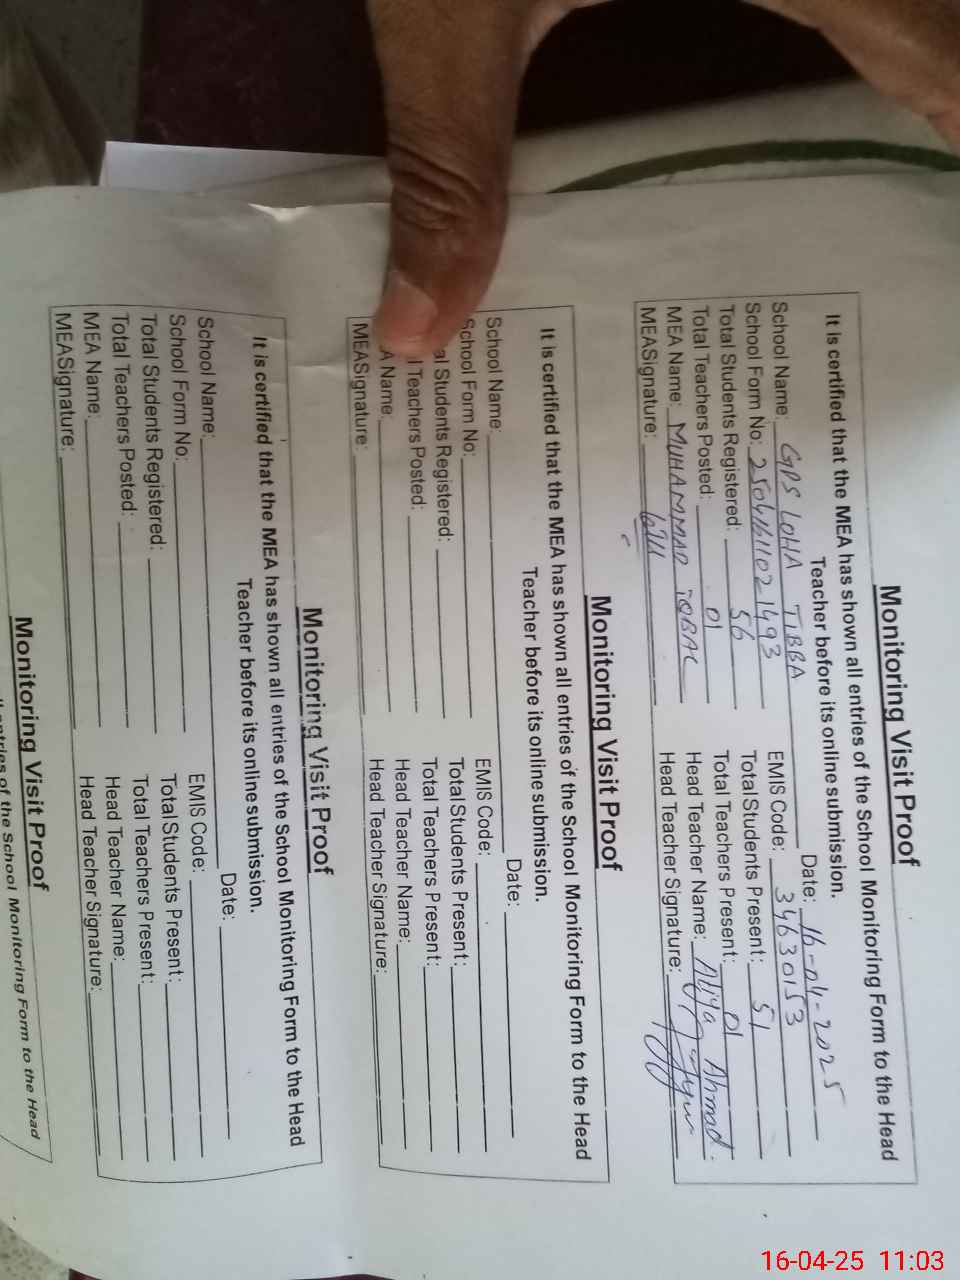 Monitoring Visit Proof
It is certified that the MEA has shown all entries of the School Monitoring Form to the Head
Teacher before its online submission.
Date: 16-04-2025
School Name: GPS LOHA TIBBA
School Form No: 2504161102-1493 EMIS Code: 34630153
Total Students Registered: 56 Total Students Present: 51
Total Teachers Posted: 01 Total Teachers Present: 01
MEA Name: MUHAMMAD iQBAL Head Teacher Name: Aliya Ahmad.
MEASignature: Head Teacher Signature:
Monitoring Visit Proof
It is certified that the MEA has shown all entries of the School Monitoring Form to the Head
Teacher before its online submission.
Date:
School Name:
School Form No: EMIS Code:
al Students Registered: Total Students Present:
l Teachers Posted: Total Teachers Present:
A Name: Head Teacher Name:
MEASignature: Head Teacher Signature:
Monitoring Visit Proof
It is certified that the MEA has shown all entries of the School Monitoring Form to the Head
Teacher before its online submission.
Date:
School Name:
School Form No: EMIS Code:
Total Students Registered: Total Students Present:
Total Teachers Posted: Total Teachers Present:
MEA Name: Head Teacher Name:
MEASignature: Head Teacher Signature:
Monitoring Visit Proof
entries of the School Monitoring Form to the Head
16-04-25 11:03